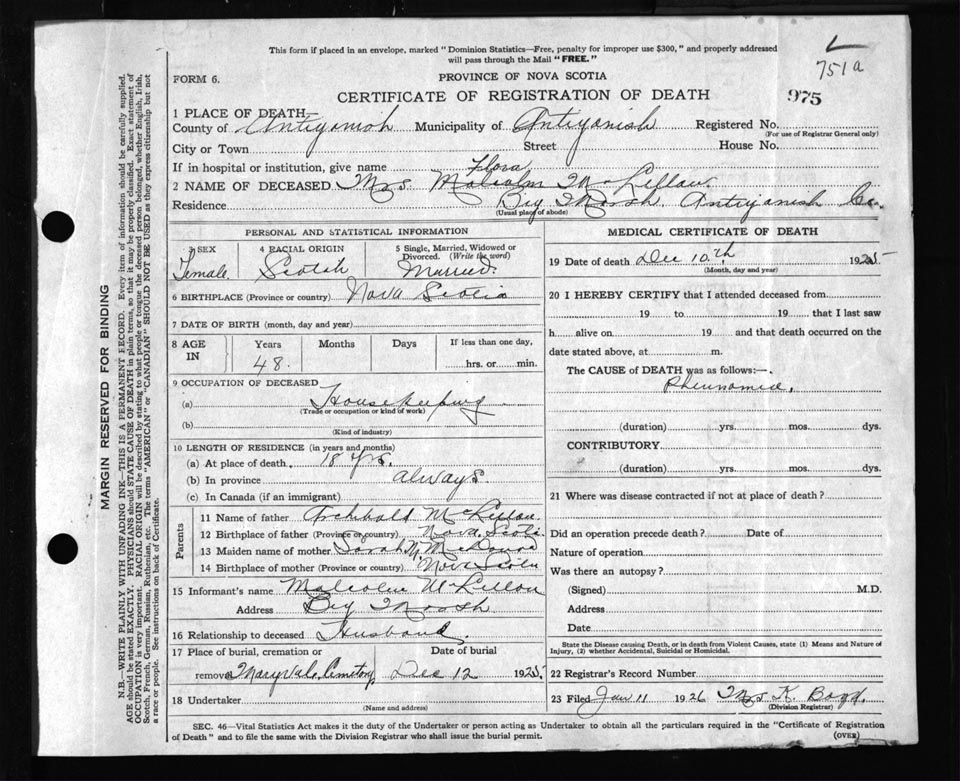 This form if placed in an envelope, marked "Dominion Statistics—Free, penalty for improper use $300," and properly addressed
will pass through the Mail "FREE."
751a
FORM 6.
PROVINCE OF NOVA SCOTIA
CERTIFICATE OF REGISTRATION OF DEATH
975
1 PLACE OF DEATH—
County of Antigonish Municipality of Antigonish Registered No.
(For use of Registrar General only)
City or Town Street House No.
If in hospital or institution, give name
Flora
2 NAME OF DECEASED Mrs. Malcolm McLellan.
Residence Big Marsh. Antigonish Co.
(Usual place of abode)
PERSONAL AND STATISTICAL INFORMATION
3 SEX 4 RACIAL ORIGIN 5 Single, Married, Widowed or
Divorced. (Write the word)
Female Scotch Married.
6 BIRTHPLACE (Province or country) Nova Scotia
7 DATE OF BIRTH (month, day and year)
8 AGE IN Years Months Days If less than one day,
48. hrs. or min.
9 OCCUPATION OF DECEASED
(a) Housekeeping
(Trade or occupation or kind of work)
(b)
(Kind of industry)
10 LENGTH OF RESIDENCE (in years and months)
(a) At place of death. 18 yrs.
(b) In province always.
(c) In Canada (if an immigrant)
Parents
11 Name of father Archibald McLellan.
12 Birthplace of father (Province or country) Nova Scotia
13 Maiden name of mother Sarah
14 Birthplace of mother (Province or country) Nova Scotia
15 Informant's name Malcolm McLellan
Address Big Marsh
16 Relationship to deceased Husband.
17 Place of burial, cremation or Date of burial
removal Maryvale Cemetery Dec 12 1925.
18 Undertaker
(Name and address)
MEDICAL CERTIFICATE OF DEATH
19 Date of death Dec 10th 1925
(Month, day and year)
20 I HEREBY CERTIFY that I attended deceased from
19 to 19 that I last saw
h alive on 19 and that death occurred on the
date stated above, at m.
The CAUSE of DEATH was as follows:—
Pheunomia.
(duration) yrs. mos. dys.
CONTRIBUTORY
(duration) yrs. mos. dys.
21 Where was disease contracted if not at place of death?
Did an operation precede death? Date of
Nature of operation
Was there an autopsy?
(Signed) M.D.
Address
Date
State the Disease causing Death, or in death from Violent Causes, state (1) Means and Nature of
Injury, (2) whether Accidental, Suicidal or Homicidal.
22 Registrar's Record Number
23 Filed Jan 11 1926 Mrs K. Boyd.
(Division Registrar)
SEC. 46—Vital Statistics Act makes it the duty of the Undertaker or person acting as Undertaker to obtain all the particulars required in the "Certificate of Registration
of Death" and to file the same with the Division Registrar who shall issue the burial permit.
(OVER)
MARGIN RESERVED FOR BINDING
N.B.—WRITE PLAINLY WITH UNFADING INK—THIS IS A PERMANENT RECORD. Every item of information should be carefully supplied.
AGE should be stated EXACTLY. PHYSICIANS should STATE CAUSE OF DEATH in plain terms, so that it may be properly classified. Exact statement of
OCCUPATION is very important. RACIAL ORIGIN will be described by stating to what people or tongue the deceased person belonged, whether English, Irish,
Scotch, French, German, Russian, Ruthenian, etc. The terms "AMERICAN" or "CANADIAN" SHOULD NOT BE USED as they express citizenship but not
a race or people. See instructions on back of Certificate.